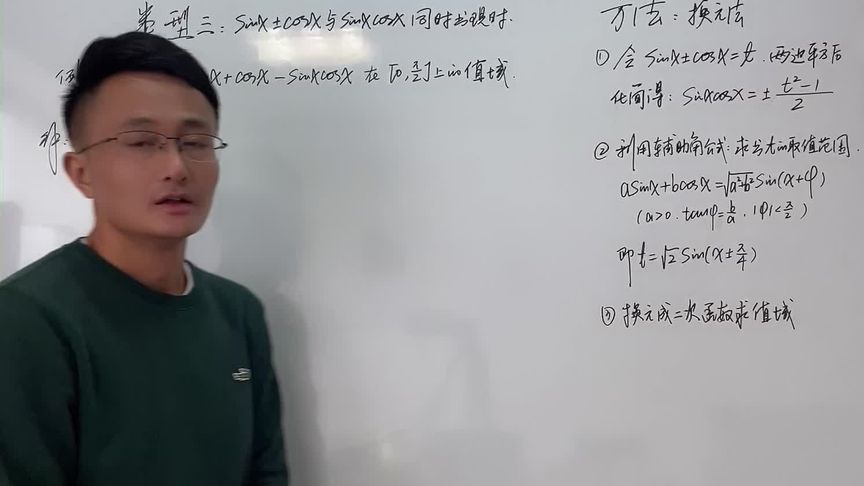 类型三：sinx±cosx与sinxcosx同时出现时.
x+cosx-sinxcosx 在[0,π/2]上的值域.
解:
方法：换元法
① 令 sinx±cosx=t. 两边平方后
化简得：sinxcosx=±(t²-1)/2
② 利用辅助角公式：求出t的取值范围.
asinx+bcosx=√(a²+b²)sin(x+φ)
(a>0. tanφ=b/a. |φ|<π/2)
即t=√2sin(x±π/4)
③ 换元成二次函数求值域